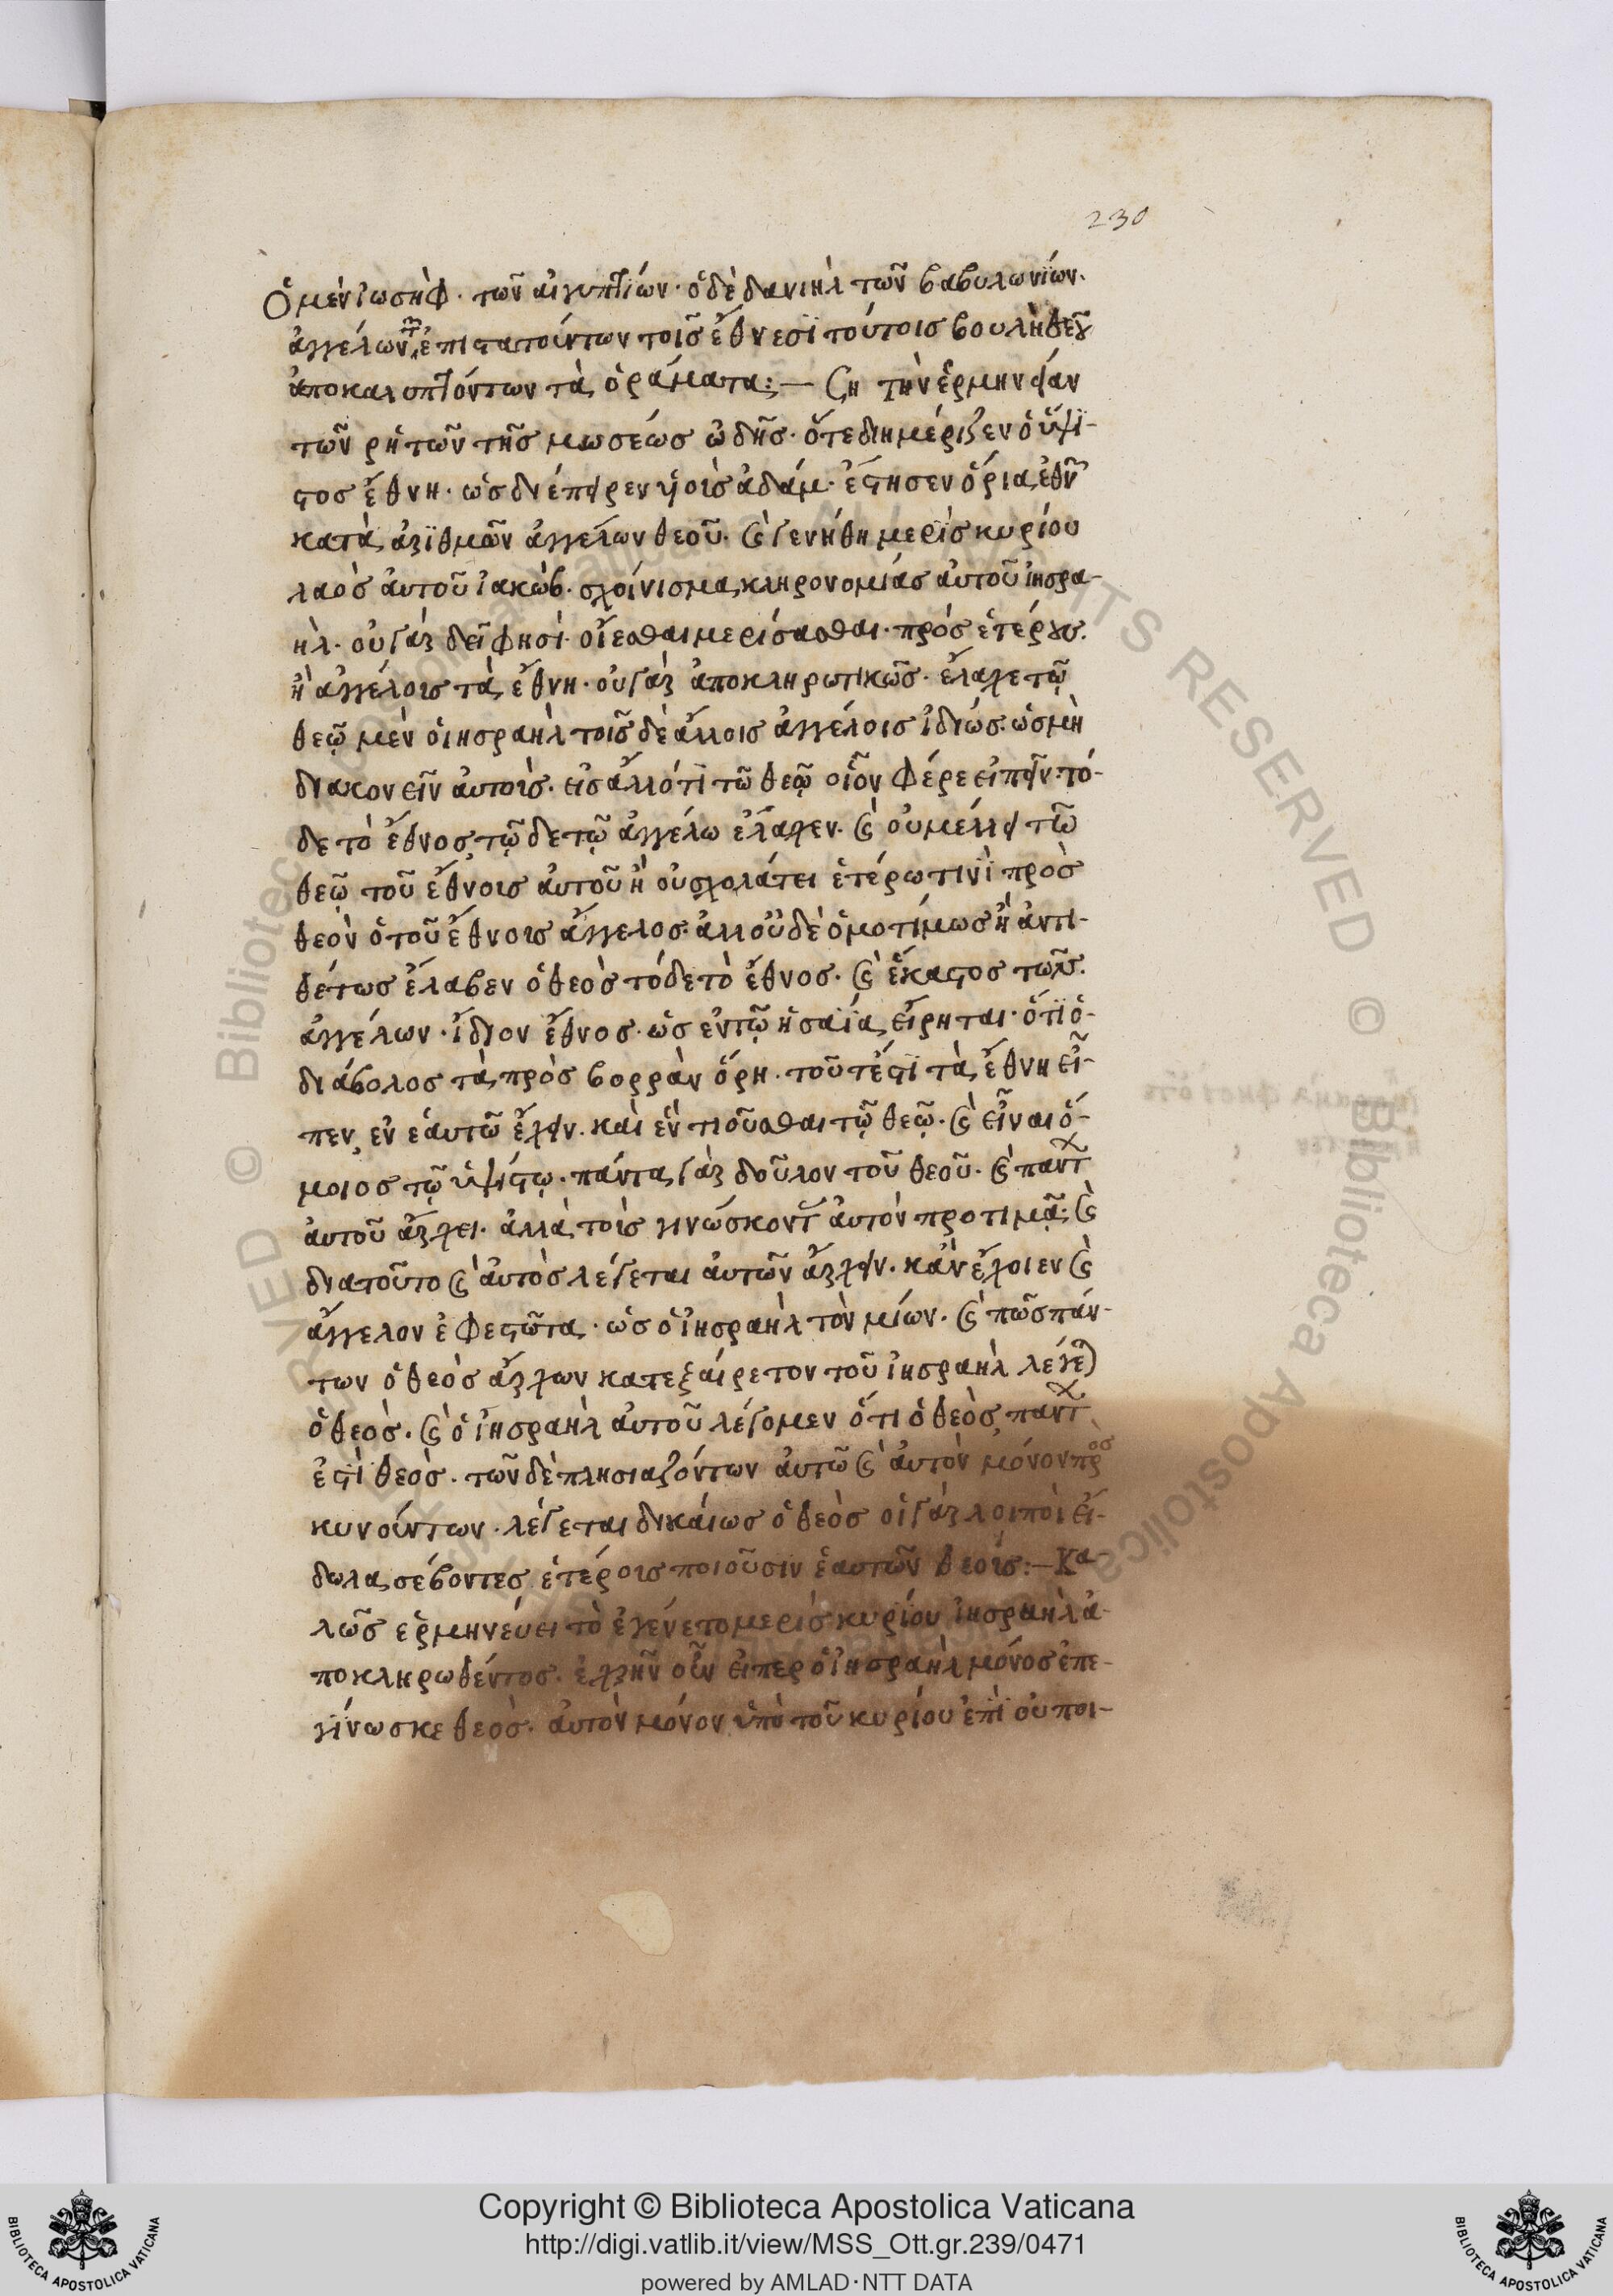 230
Ὁ μὲν ἰωσὴφ· τῶν αἰγυπτίων· ὁ δὲ δανιὴλ τῶν βαβυλωνίων.
ἀγγέλων τῶν ἐπιστατούντων τοῖς ἔθνεσι τούτοις βουλῇ θεοῦ
ἀποκαλυπτόντων τὰ ὁράματα:— Ση τὴν ἑρμηνείαν
τῶν ῥητῶν τῆς μωσέως ὠδῆς· ὅτε διημέριζεν ὁ ὕψι-
στος ἔθνη· ὡς διέσπειρεν υἱοὺς ἀδάμ· ἔστησεν ὅρια ἐθνῶν
κατὰ ἀριθμὸν ἀγγέλων θεοῦ. καὶ ἐγενήθη μερὶς κυρίου
λαὸς αὐτοῦ ἰακώβ. σχοίνισμα κληρονομίας αὐτοῦ ἰησρα-
ήλ· οὐ γὰρ δεῖ φησί· οἴεσθαι μερίσασθαι· πρὸς ἑτέρους.
ἢ ἀγγέλους τὰ ἔθνη· οὐ γὰρ ἀποκληρωτικῶς· ἔλαχε τῷ
θεῷ μὲν ὁ ἰησραὴλ τοῖς δὲ ἄλλοις ἀγγέλοις ἰδίως. ὡς μὴ
διακονεῖν αὐτοὺς· εἰς ἄλλό τι τῶ θεῷ οἷον φέρε εἰπεῖν· τό-
δε τὸ ἔθνος τῷδε τῷ ἀγγέλω ἔλαχεν. καὶ οὐ μέλει τῶ
θεῷ τοῦ ἔθνους αὐτοῦ ἢ οὐ σχολάζει ἑτέρω τινὶ πρὸς
θεὸν ὁ τοῦ ἔθνους ἄγγελος· ἀλλ' οὐδὲ ὁμοτίμως ἢ ἀντι-
θέτως ἔλαβεν ὁ θεὸς τόδε τὸ ἔθνος. καὶ ἕκαστος τῶν
ἀγγέλων· ἴδιον ἔθνος· ὡς ἐν τῷ ἡσαΐα εἴρηται· ὅτι ὁ-
διάβολος τὰ πρὸς βορρὰν ὄρη· τοῦτέστι τὰ ἔθνη εἶ-
πεν ἐν ἑαυτῶ ἔχειν. καὶ ἐναντιοῦσθαι τῷ θεῷ. καὶ εἶναι ὅ-
μοιος τῷ ὑψίστῳ· πάντα γὰρ δοῦλον τοῦ θεοῦ. καὶ παντ
αὐτοῦ ἄρχει. ἀλλὰ τοὺς γινώσκοντ αὐτὸν προτιμᾷ· καὶ
διατοῦτο καὶ αὐτὸς λέγεται αὐτῶν ἄρχειν. κἂν ἔχοιεν καὶ
ἄγγελον ἐφεστῶτα· ὡς ὁ ἰησραὴλ τὸν μίων. καὶ πῶς πάν-
των ὁ θεὸς ἄρχων κατεξαίρετον τοῦ ἰησραὴλ λέγεται
ὁ θεὸς. καὶ ὁ ἰησραὴλ αὐτοῦ λέγομεν ὅτι ὁ θεὸς παντ
ἐστὶ θεὸς· τῶν δὲ πλησιαζόντων αὐτῶ καὶ αὐτὸν μόνον προσ
κυνούντων· λέγεται δικαίως ὁ θεὸς οἱ γὰρ λοιποὶ εἴ-
δωλα σέβοντες ἑτέρους ποιοῦσιν ἑαυτῶν θεούς:— Κα-
λῶς ἑρμηνεύει τὸ ἐγένετο μερὶς κυρίου ἰησραὴλ ἀ-
ποκληρωθέντος. ἐχρῆν οὖν εἴπερ ὁ ἰησραὴλ μόνος ἐπε-
γίνωσκε θεὸς. αὐτὸν μόνον ὑπὸ τοῦ κυρίου ἐπὶ οὐ ποι-
© Biblioteca Apostolica Vaticana
ALL RIGHTS RESERVED
Copyright © Biblioteca Apostolica Vaticana
http://digi.vatlib.it/view/MSS_Ott.gr.239/0471
powered by AMLAD·NTT DATA
BIBLIOTECA APOSTOLICA VATICANA
BIBLIOTECA APOSTOLICA VATICANA